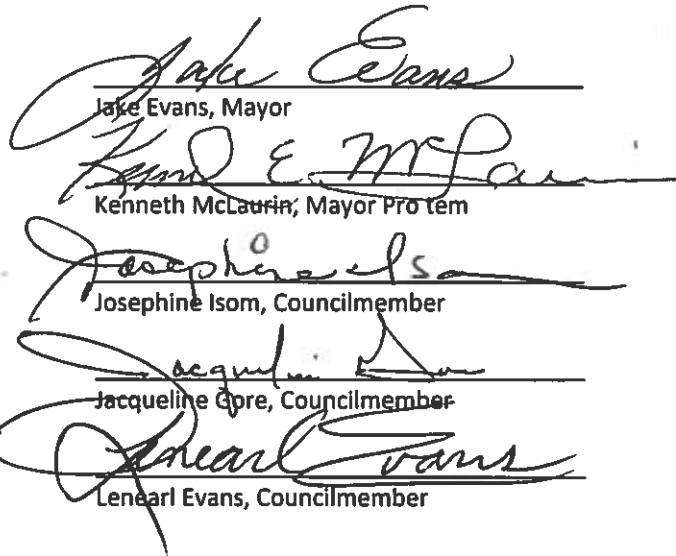 Jake Evans
Jake Evans, Mayor
Kenneth E. McLaurin
Kenneth McLaurin, Mayor Pro tem
Josephine Isom
Josephine Isom, Councilmember
Jacqueline Gore
Jacqueline Gore, Councilmember
Lenearl Evans
Lenearl Evans, Councilmember